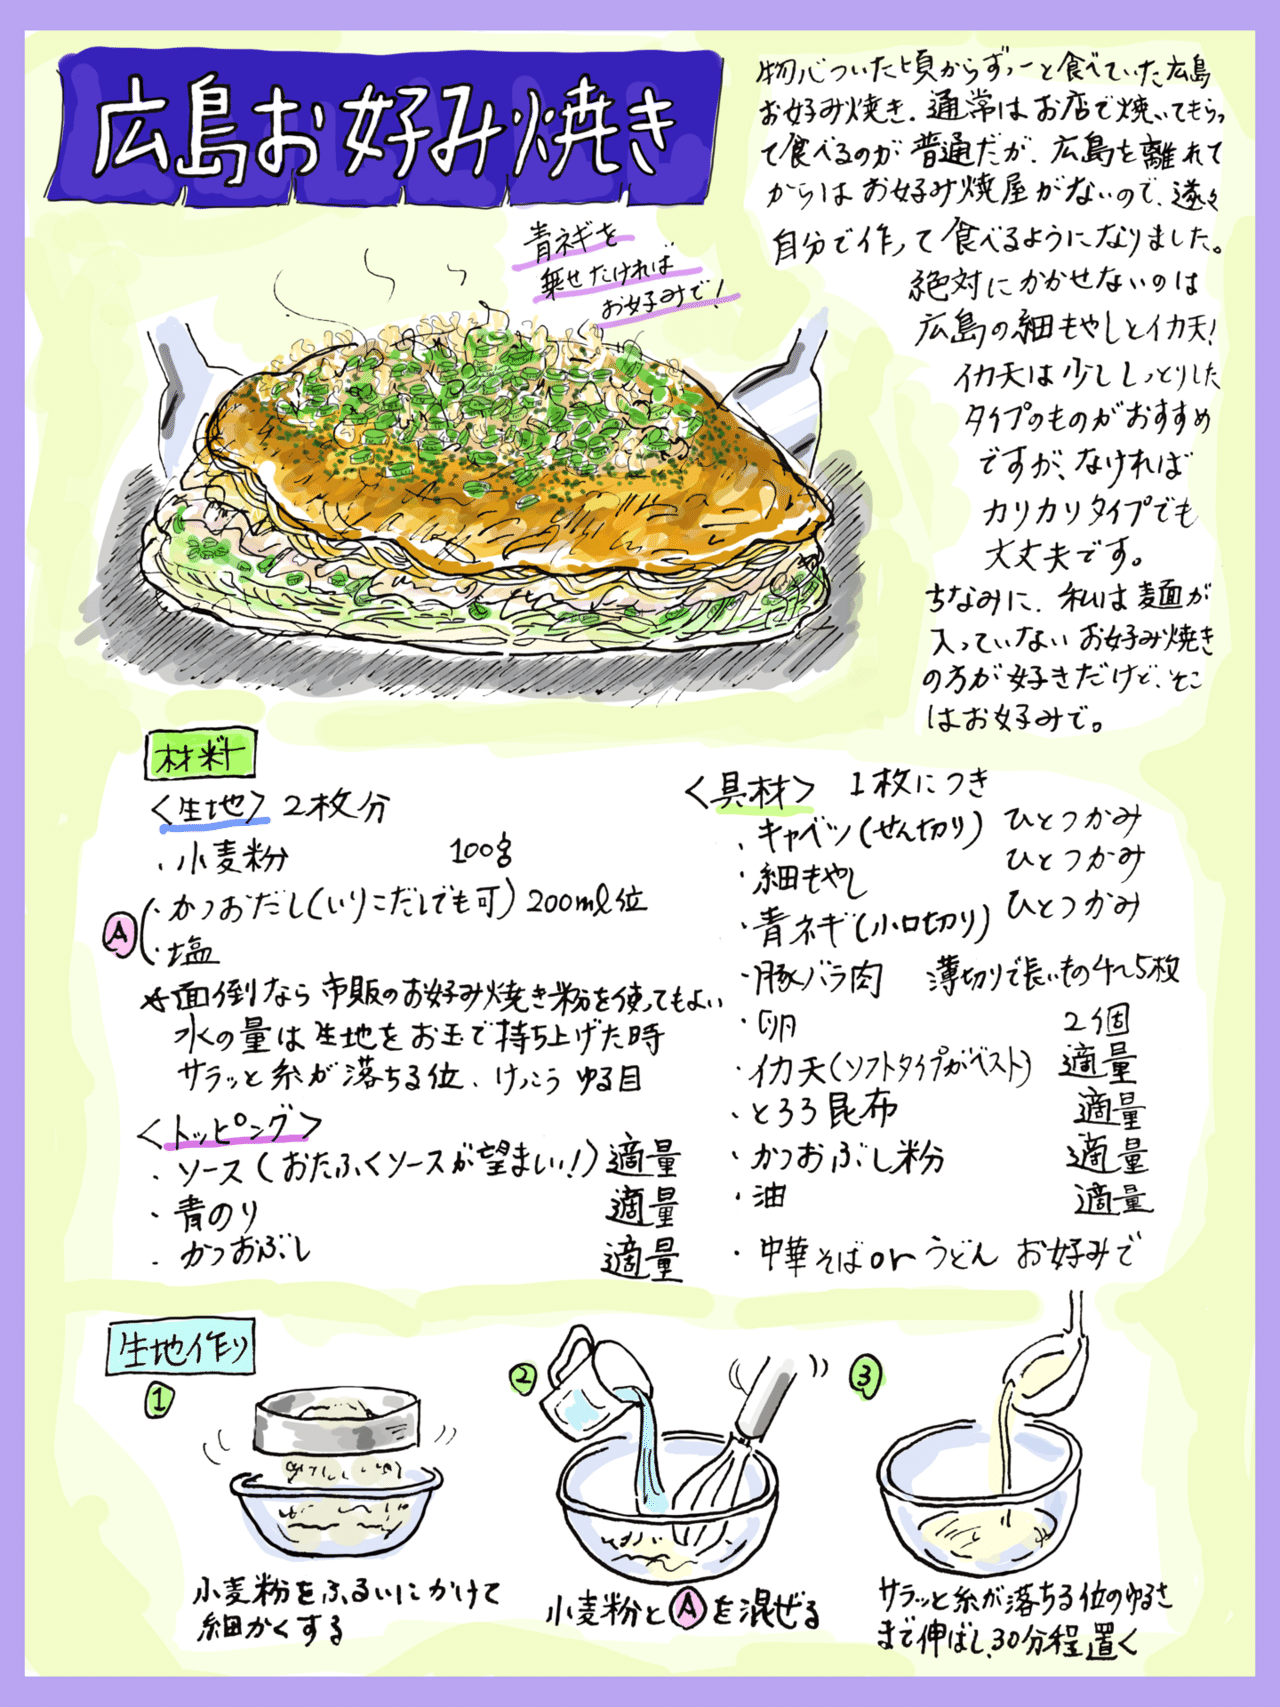 広島お好み焼き
物心ついた頃からずっーと食べていた広島
お好み焼き．通常はお店で焼いてもらっ
て食べるのが普通だが、広島を離れて
からはお好み焼屋がないので、遂々
自分で作って食べるようになりました。
絶対にかかせないのは
広島の細もやしとイカ天！
イカ天は少ししっとりした
タイプのものがおすすめ
ですが、なければ
カリカリタイプでも
大丈夫です。
ちなみに、私は麺が
入っていない お好み焼き
の方が好きだけど、そこ
はお好みで。
青ネギを
乗せたければ
お好みで！
材料
〈生地〉2枚分
・小麦粉 100g
A
・かつおだし(いりこだしでも可) 200ml位
・塩
☆面倒なら市販のお好み焼き粉を使ってもよい
水の量は生地をお玉で持ち上げた時
サラッと糸が落ちる位、けっこうゆる目
〈トッピング〉
・ソース(おたふくソースが望まい！) 適量
・青のり 適量
・かつおぶし 適量
〈具材〉 1枚につき
・キャベツ(せん切り) ひとつかみ
・細もやし ひとつかみ
・青ネギ(小口切り) ひとつかみ
・豚バラ肉 薄切りで長いもの4〜5枚
・卵 2個
・イカ天(ソフトタイプがベスト) 適量
・とろろ昆布 適量
・かつおぶし粉 適量
・油 適量
・中華そばorうどん お好みで
生地作り
1
小麦粉をふるいにかけて
細かくする
2
小麦粉とAを混ぜる
3
サラッと糸が落ちる位のゆるさ
まで伸ばし、30分程置く